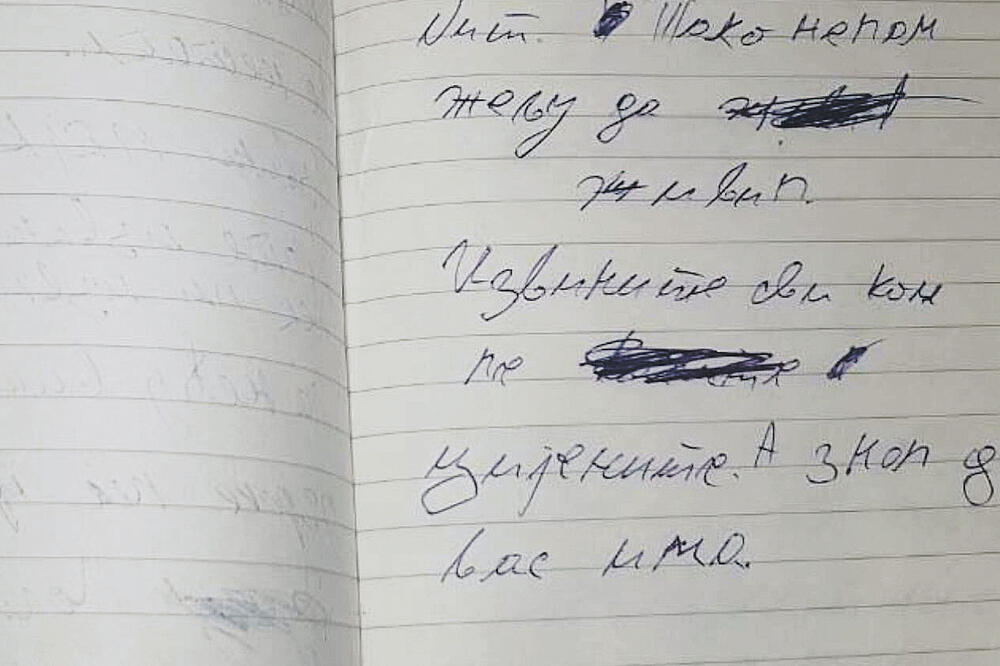 Нит. Тако немам
жељу да
живим.
Извините сви који
ме
цијените. А знам д
вас има.